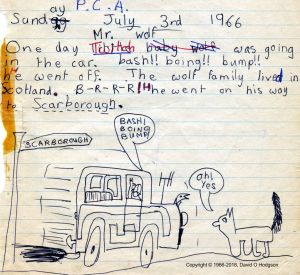 Sunday P.C.A.
July 3rd 1966
Mr. wolf
One day was going
in the car. bash!! boing!! bump!!
he went off. The wolf family lived in
Scotland. B-R-R-R!H he went on his way
to Scarborough.
BASH!
BOING
BUMP!
SCARBOROUGH
ah!
Yes
Copyright © 1966-2016, David O Hodgson